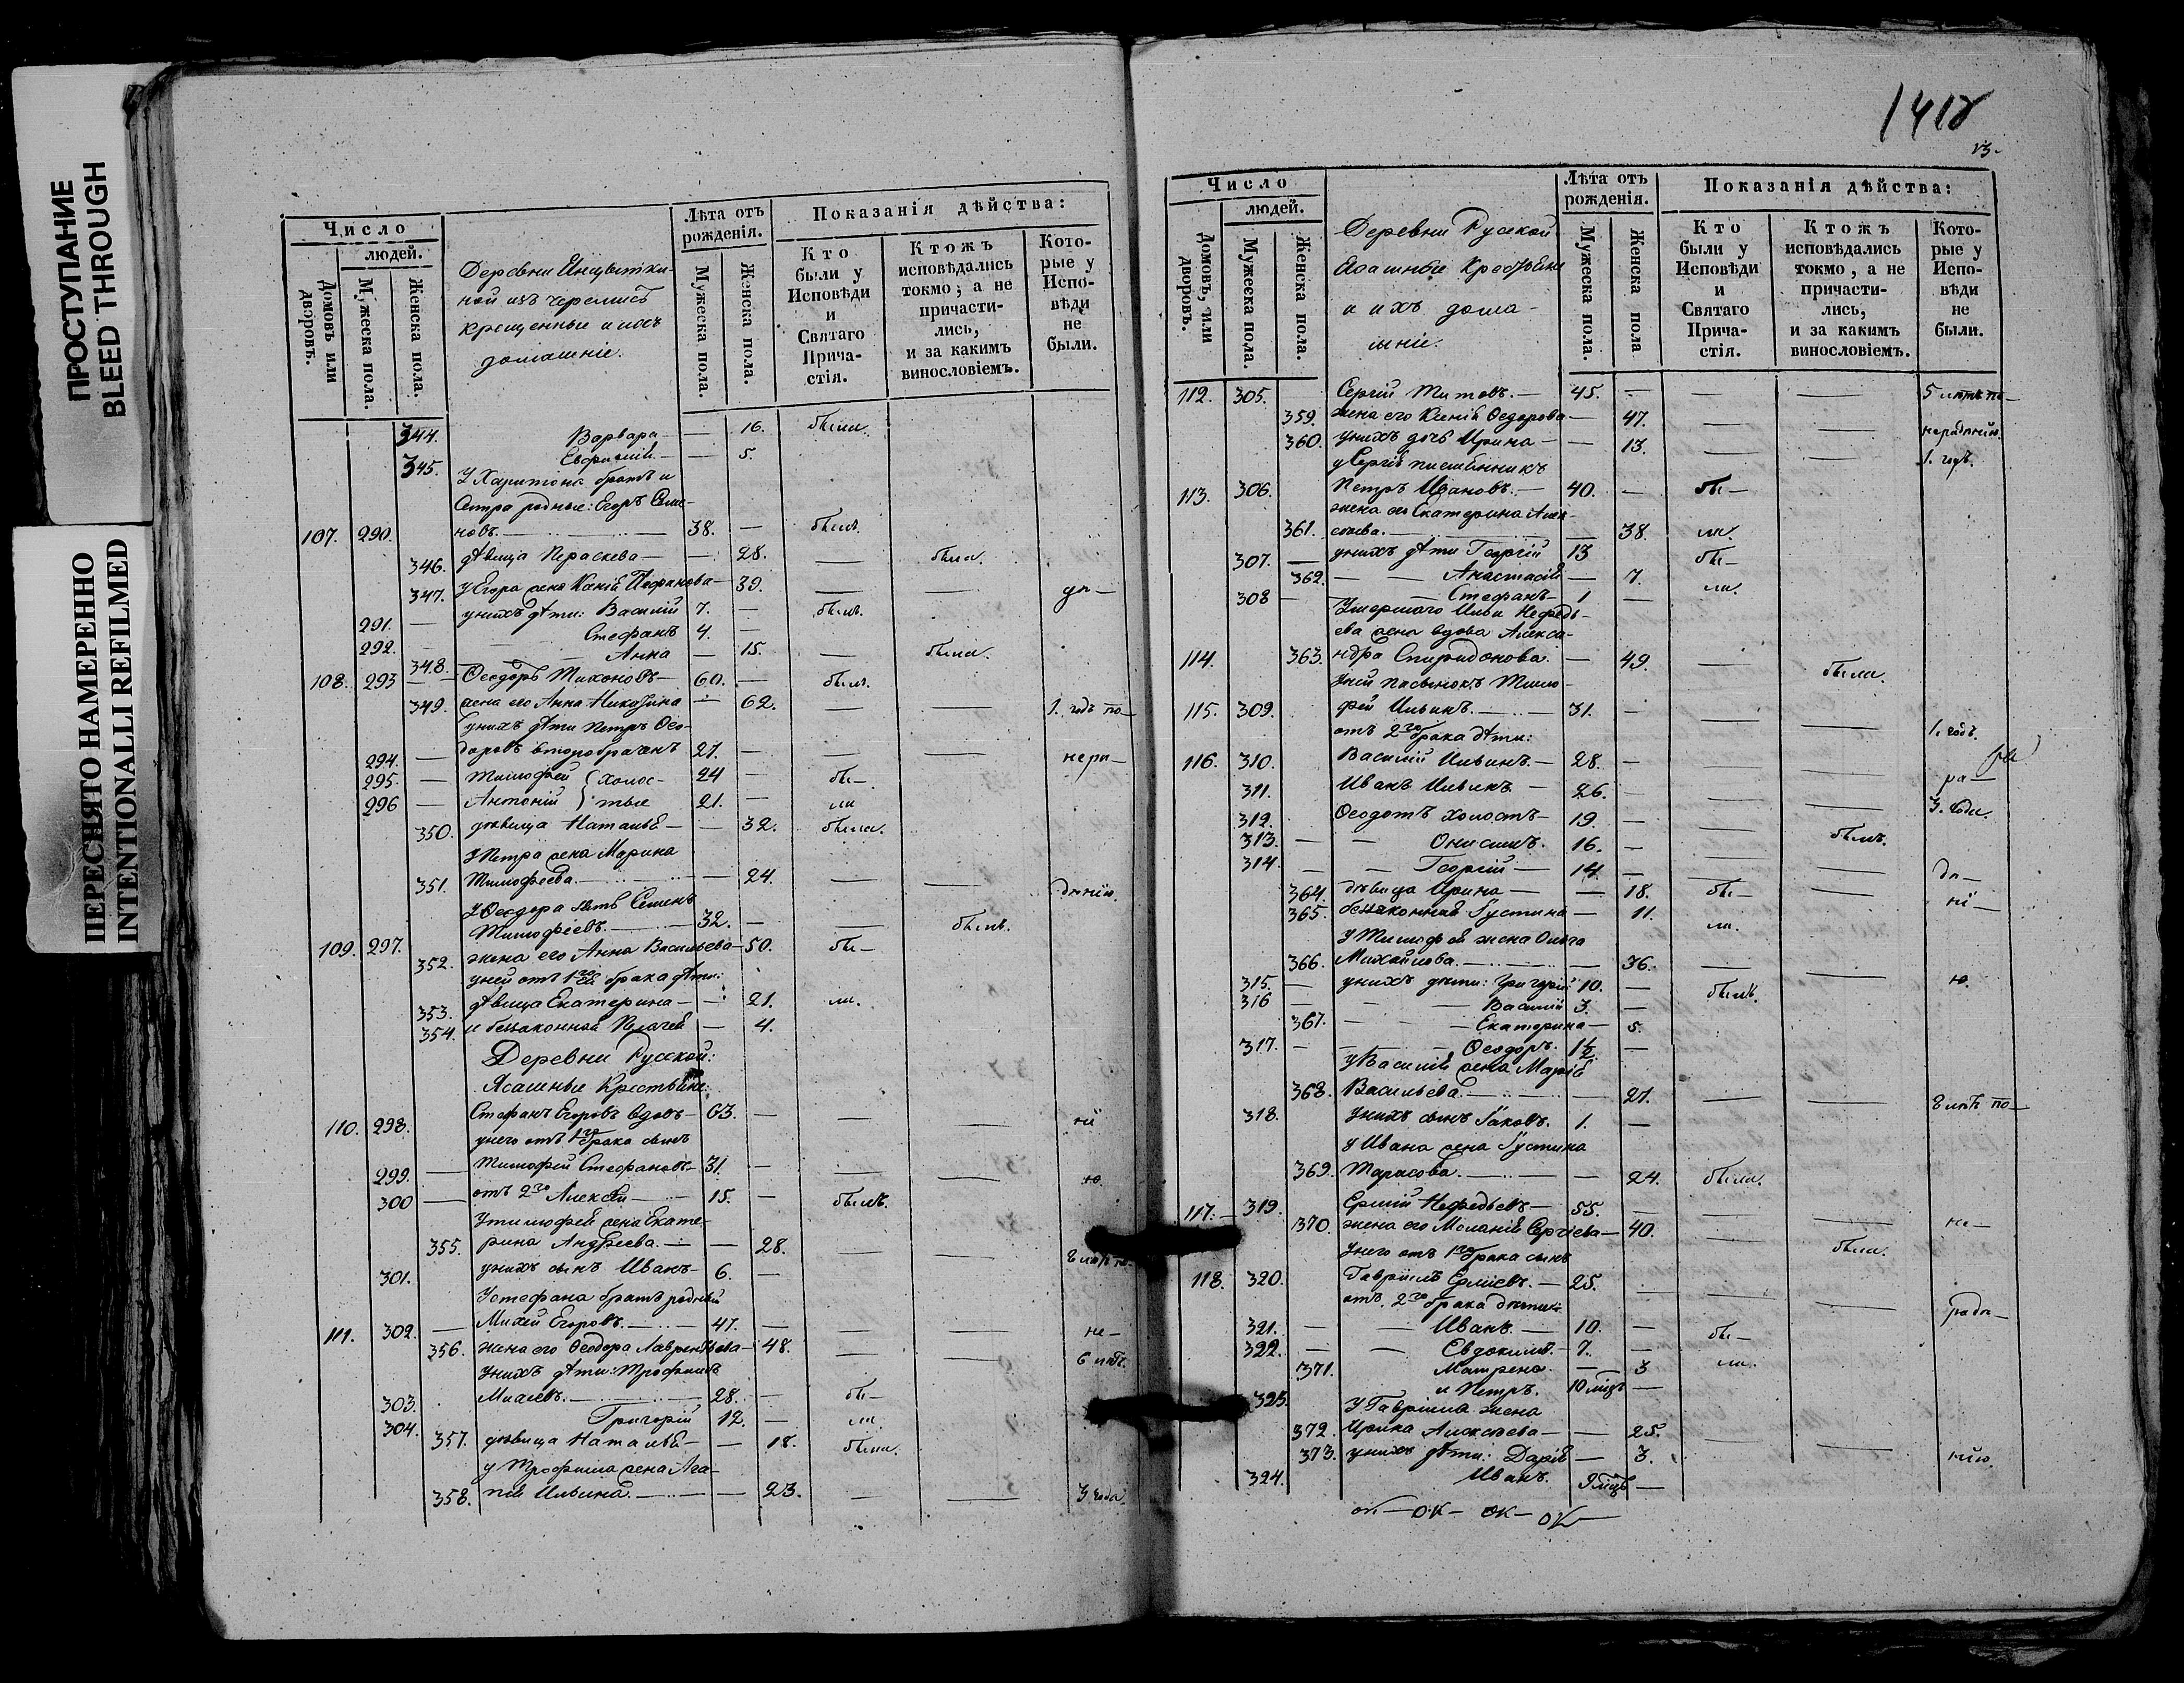 ПРОСТУПАНИЕ
BLEED THROUGH
ПЕРЕСНЯТО НАМЕРЕННО
INTENTIONALLI REFILMED
Число
людей.
Домовъ или дворовъ.
Мужеска пола.
Женска пола.
крещенные и ихъ
домашніе.
Лѣта отъ рожденія.
Мужеска пола.
Женска пола.
Показанія дѣйства:
Кто были у Исповѣди и Святаго Прича-стія.
Ктожъ исповѣдались токмо, а не причасти-лись, и за какимъ винословіемъ.
Кото-рые у Испо-вѣди не были.
344. Варвара — — 16. были.
345. — 5.
У Харитона братъ и
сестра родные: Егоръ Семе-
107. 290. новъ. — 38. — былъ.
346. дѣвица Параскева — — 28. — была.
347. У Егора жена — 39. — —
291. — у нихъ дѣти: Василій 7. — былъ.
292. — Стефанъ 4. —
348. Анна — 15. — была.
108. 293 — Ѳеодоръ Тихоновъ — 60. — былъ.
349. жена его Анна — 62. — — 1. годъ по—
у нихъ дѣти Петръ Ѳео-
294. — доровъ второбраченъ 27. — — нера—
295. — Тимофей холос- 24 — бы—
296 — Антоній тые 21. — ли
350. дѣвица Наталья — — 32. была.
У Петра жена Марина
351. Тимофеева. — — 24. — — дѣнію.
У Ѳеодора зять Семенъ
109. 297. Тимофеевъ. — 32. — — былъ.
352. жена его Анна Васильева — 50. бы—
у ней отъ 1го брака дѣти:
353. дѣвица Екатерина — — 21. ли.
354. и беззаконная Пелагея — 4.
Деревни Русской:
Ясашные Крестьяне:
110. 298. Стефанъ Егоровъ вдовъ — 63. — — — нѣ
у него отъ 1го брака сынъ
299. — Тимофей Стефановъ — 31. — — ю.
300 — отъ 2го Алексѣй — 15. — былъ.
У Тимофея жена Екате-
355. рина Андреева. — — 28. — — 2 лѣтъ по—
301. у нихъ сынъ Иванъ — 6. —
У Стефана братъ родный
111. 302. — Михей Егоровъ. — 47. — — — не—
356. жена его Ѳеодора Лаврентьева — 48. — — 6 лѣтъ
У нихъ дѣти: Трофимъ
303. Михеевъ. — 28. — бы—
304. Григорій 12. — ли
357. дѣвица Наталья — — 18. была.
у Трофима жена Ага-
358. пія Ильина. — — 23. — — 3 года.
1418
Число
людей.
Домовъ, или дворовъ.
Мужеска пола.
Женска пола.
Деревни Русской
Ясашные Крестьяне
и ихъ дома-
шніе.
Лѣта отъ рожденія.
Мужеска пола.
Женска пола
Показанія дѣйства:
Кто были у Исповѣди и Святаго Прича-стія.
Ктожъ исповѣдались токмо, а не причасти-лись, и за какимъ винословіемъ.
Кото-рые у Испо-вѣди не были.
112. 305. Сергій Титовъ. — 45. — — — 5 лѣтъ по—
359. жена его Ксенія Ѳедорова — 47. — —
360. у нихъ дочь Ирина — — 13. — — 1. годъ.
у Сергія племянникъ
113. 306. Петръ Ивановъ. — 40. — бы—
жена его Екатерина Алек-
361. сѣева. — — 38. ли.
307. — у нихъ дѣти Георгій 13 бы—
362. — — Анастасія — 7. ли.
308 — — Стефанъ — 1 —
Умершаго Ильи Нефедь-
ева жена вдова Алекса-
114. 363. ндра Спиридонова. — 49. — была.
у ней пасынокъ Тимо-
115. 309. фей Ильинъ. — 31. — — — 1. годъ.
отъ 2го брака дѣти:
116. 310. Василій Ильинъ — 28. — — — ра—
311. Иванъ Ильинъ — 26. — — — 3. года.
312. Ѳеодотъ холостъ — 19. — — былъ.
313. — — Онисимъ. 16. —
314. — Георгій — 14. — — дѣ—
364. дѣвица Ирина — — 18. бы— — ні—
365. беззаконная Іустина — 11. ли.
У Тимофея жена Ольга
366. Михайлова. — — 36. — — ю.
315. — у нихъ дѣти: Григорій 10. — былъ.
316 — — Василій 3. —
367. — — Екатерина — 5.
317. — — Ѳеодоръ. 1½. —
у Василія жена Марія
368. Васильева. — — 21. — — 2 лѣтъ по—
318. У нихъ сынъ Іаковъ. 1. —
у Ивана жена Іустина
369. Тарасова. — — 24. была.
117. — 319. Ермій Нефедьевъ — 55. — — — не—
370. жена его Меланія Сергіева — 40. — была.
У него отъ 1го брака сынъ
118. 320. Гавріилъ Ерміевъ. — 25. — — — радѣ—
отъ 2го брака дѣти:
321. — — Иванъ — 10. — бы—
322. — — Евдокимъ. 7. — ли.
371. Матрена. — 3
323. и Петръ. 10 мцъ —
У Гавріила жена
372. Ирина Алексѣева — — 25. — — нію.
373. у нихъ дѣти: Дарія — 3.
324. Иванъ. 9 мцъ —